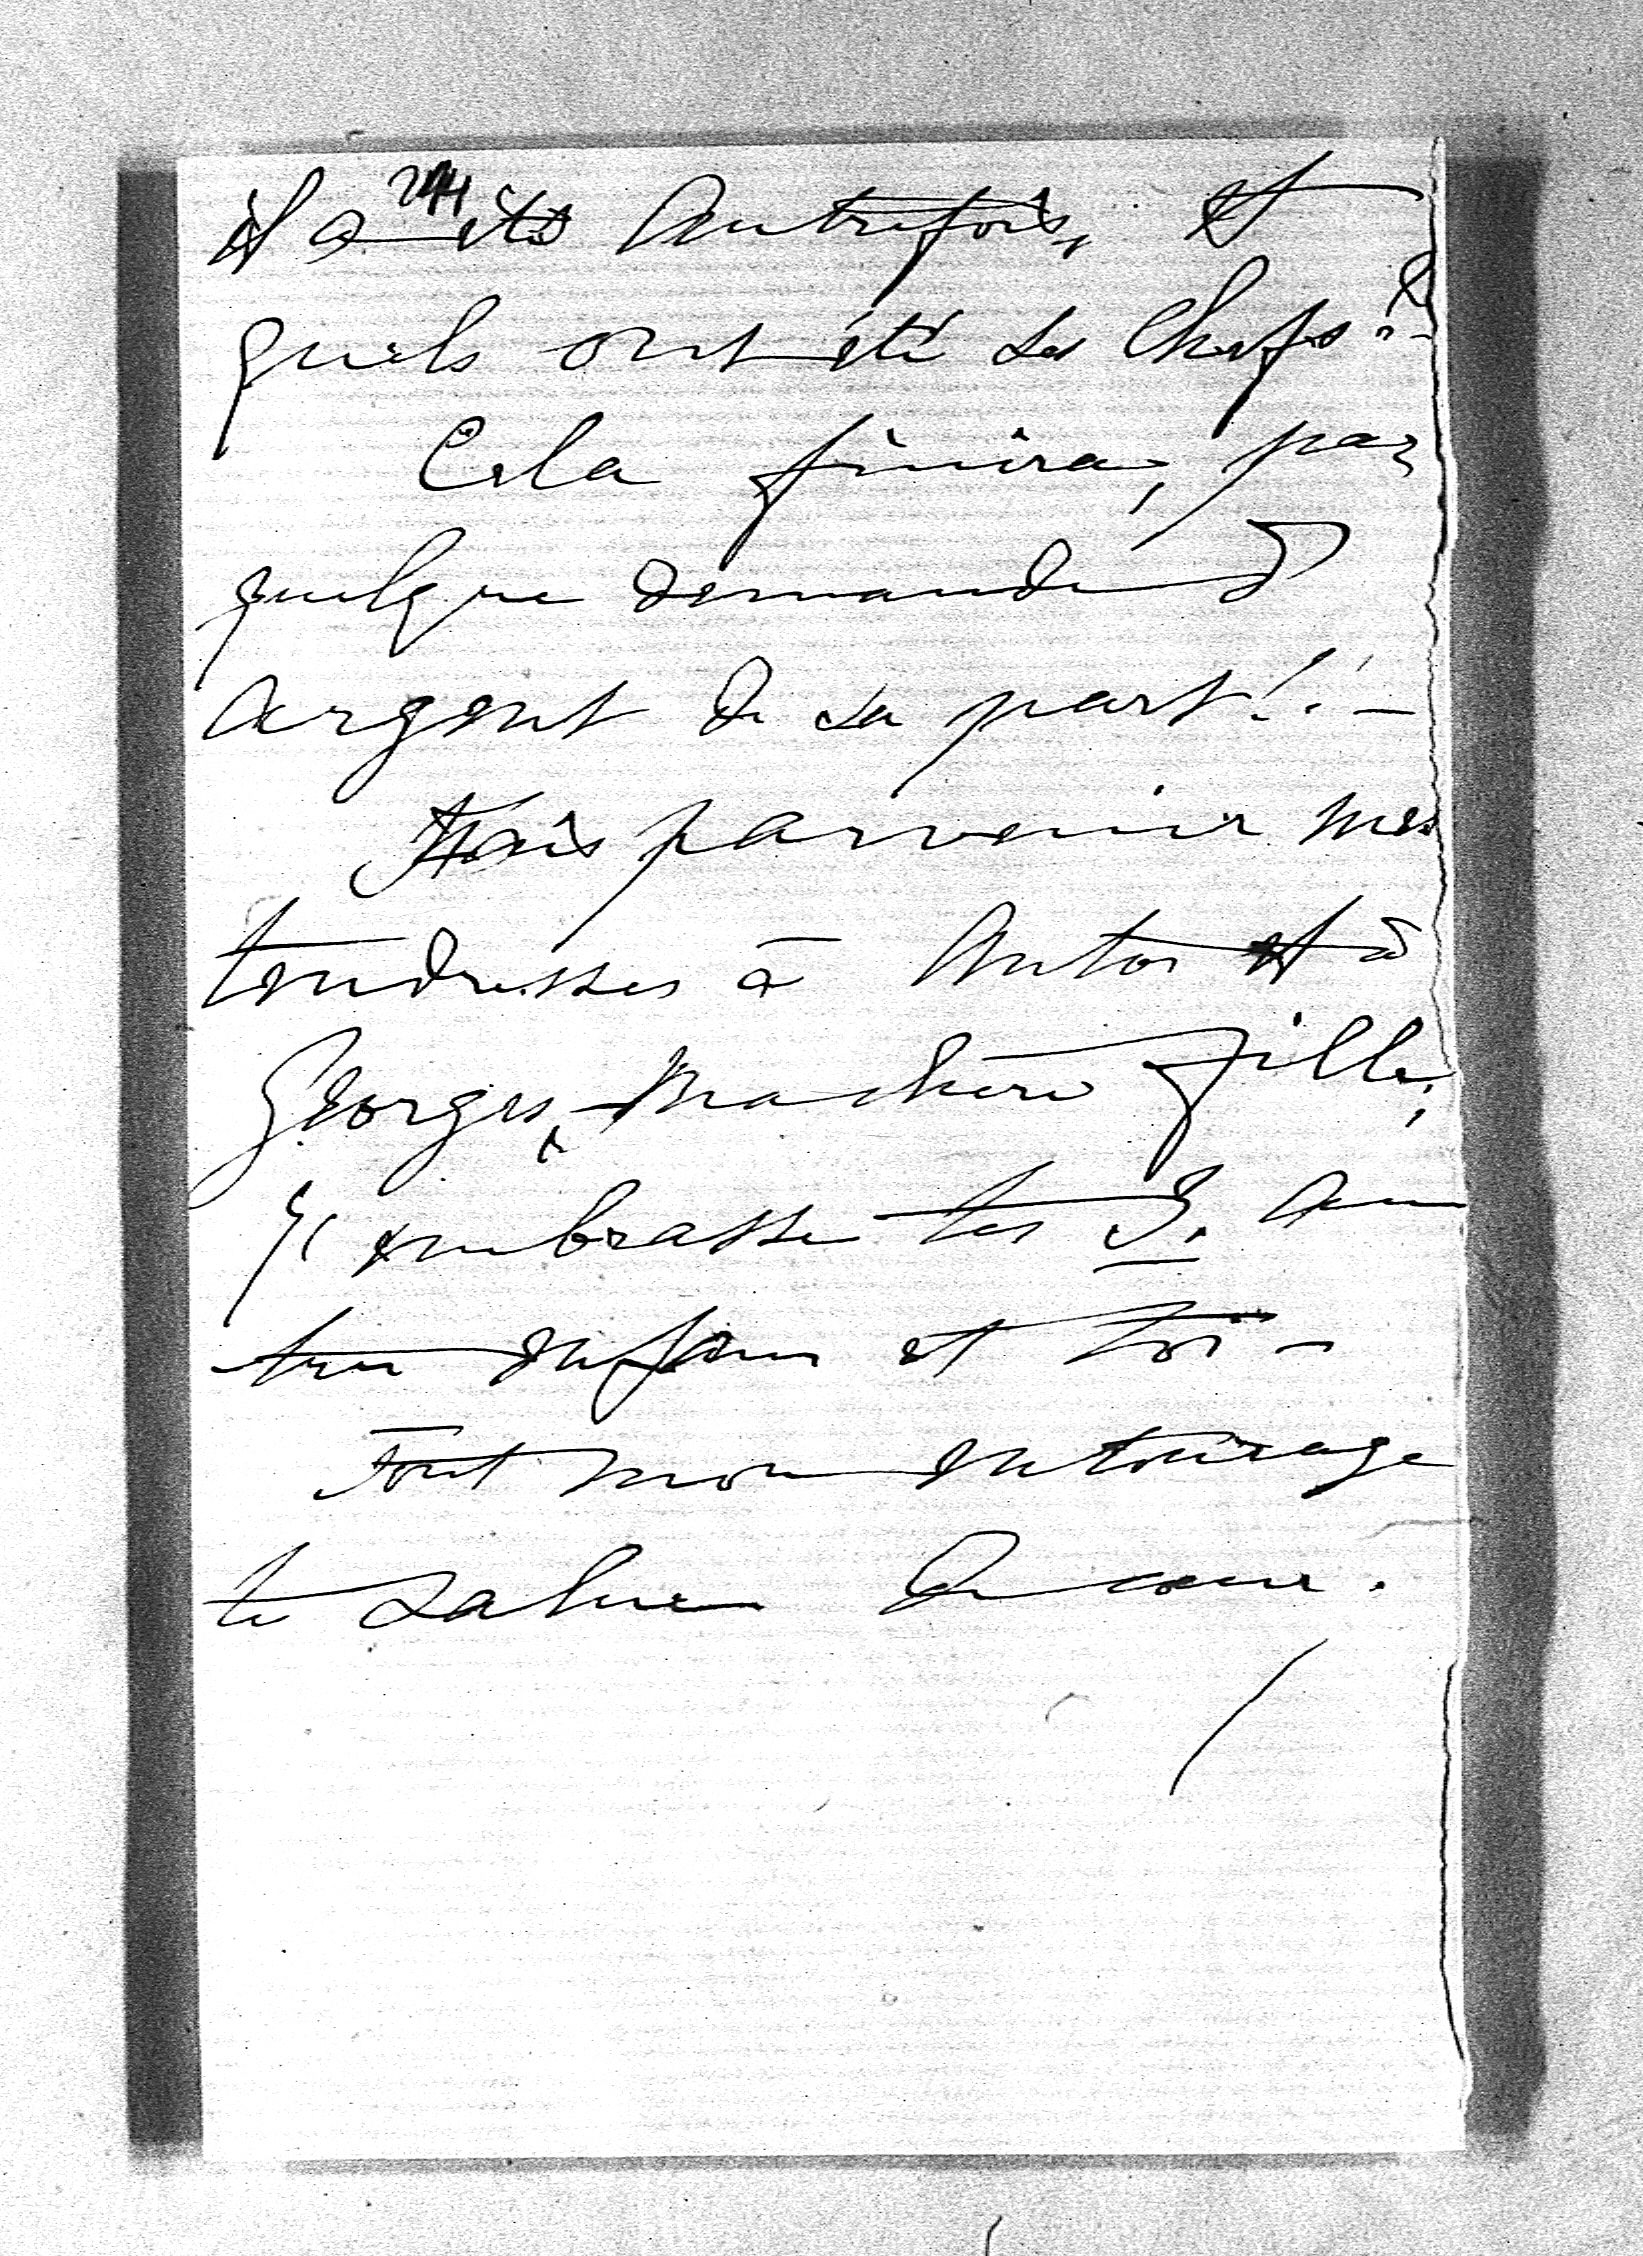 244
il a été autrefois, et
quels ont été ses chefs?
Cela finira, par
quelque demande d'
argent de sa part!! –
Fais parvenir mes
tendresses à Antos et à
Georges, ma chère fille;
J'embrasse tes 3. au
tres enfans et toi –
Tout mon entourage
te salue de cœur.